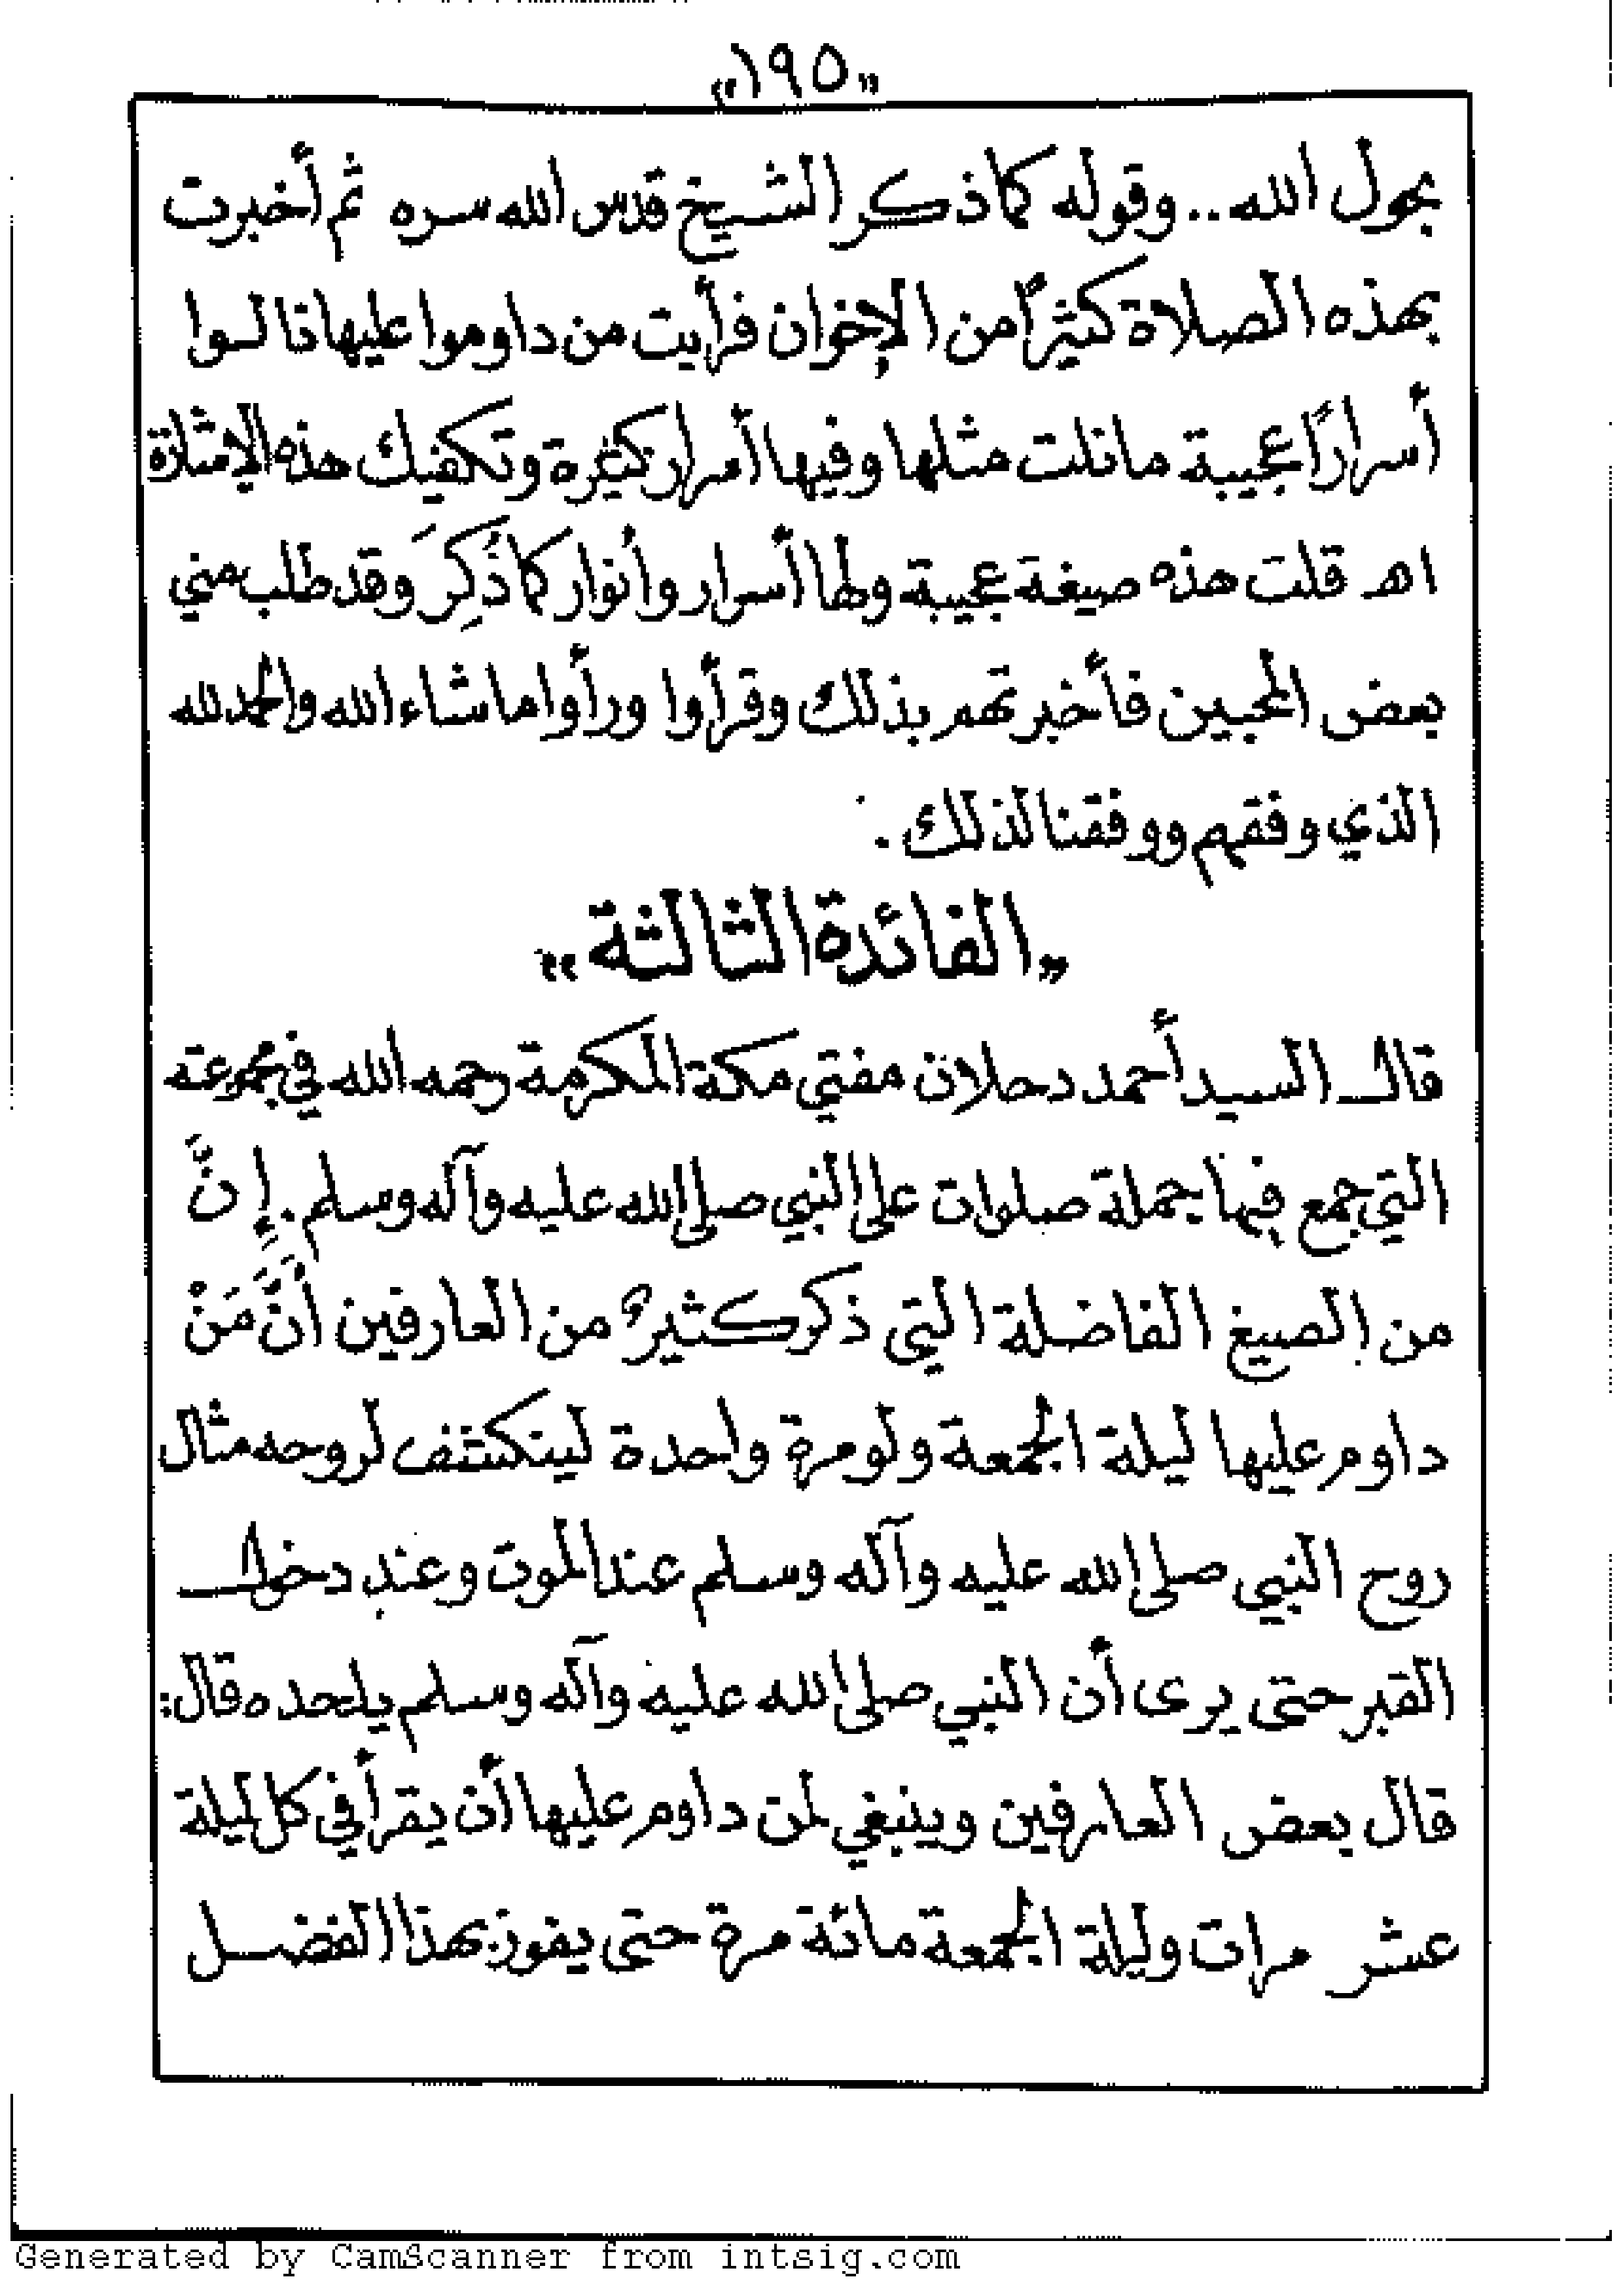 «١٩٥»
بحول الله.. وقوله كما ذكر الشيخ قدس الله سره ثم أخبرت
بهذه الصلاة كثيرًا من الإخوان فرأيت من داوموا عليها نالوا
أسرارًا عجيبة ما نلت مثلها وفيها أسرار كثيرة وتكفيك هذه الإشارة
اهـ قلت هذه صيغة عجيبة ولها أسرار وأنوار كما ذُكِرَ وقد طلب مني
بعض المحبين فأخبرتهم بذلك وقرأوا ورأوا ما شاء الله والحمد لله
الذي وفقهم ووفقنا لذلك.
«الفائدة الثالثة»
قال السيد أحمد دحلان مفتي مكة المكرمة رحمه الله في مجموعته
التي جمع فيها جملة صلوات على النبي صلى الله عليه وآله وسلم. إنَّ
من الصيغ الفاضلة التي ذكر كثيرٌ من العارفين أنَّ مَنْ
داوم عليها ليلة الجمعة ولو مرة واحدة لينكشف لروحه مثال
روح النبي صلى الله عليه وآله وسلم عند الموت وعند دخول
القبر حتى يرى أن النبي صلى الله عليه وآله وسلم يلحده قال:
قال بعض العارفين وينبغي لمن داوم عليها أن يقرأ في كل ليلة
عشر مرات وليلة الجمعة مائة مرة حتى يفوز بهذا الفضل
Generated by CamScanner from intsig.com